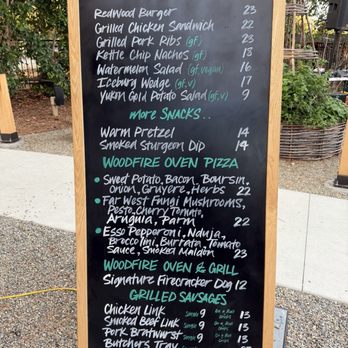 Redwood Burger 23
Grilled Chicken Sandwich 22
Grilled Pork Ribs (gf) 23
Kettle Chip Nachos (gf) 13
Watermelon Salad (gf, vegan) 16
Iceburg Wedge (gf, v) 17
Yukon Gold Potato Salad (gf, v) 9
more SNACKS..
Warm Pretzel 14
Smoked Sturgeon Dip 14
WOODFIRE OVEN PIZZA
Sweet Potato, Bacon, Boursin,
Onion, Gruyere, Herbs 22
Far West Fungi Mushrooms,
Pesto, Cherry Tomato,
Arugula, Parm 22
Esso Pepperoni, Nduja,
Broccolini, Burrata, Tomato
Sauce, Smoked Maldon 23
WOODFIRE OVEN & GRILL
Signature Firecracker Dog 12
GRILLED SAUSAGES
Chicken Link Single 9 On a Bun 13
Smoked Beef Link Single 9 On a Bun 13
Pork Bratwurst Single 9 On a Bun 13
Butchers Tray